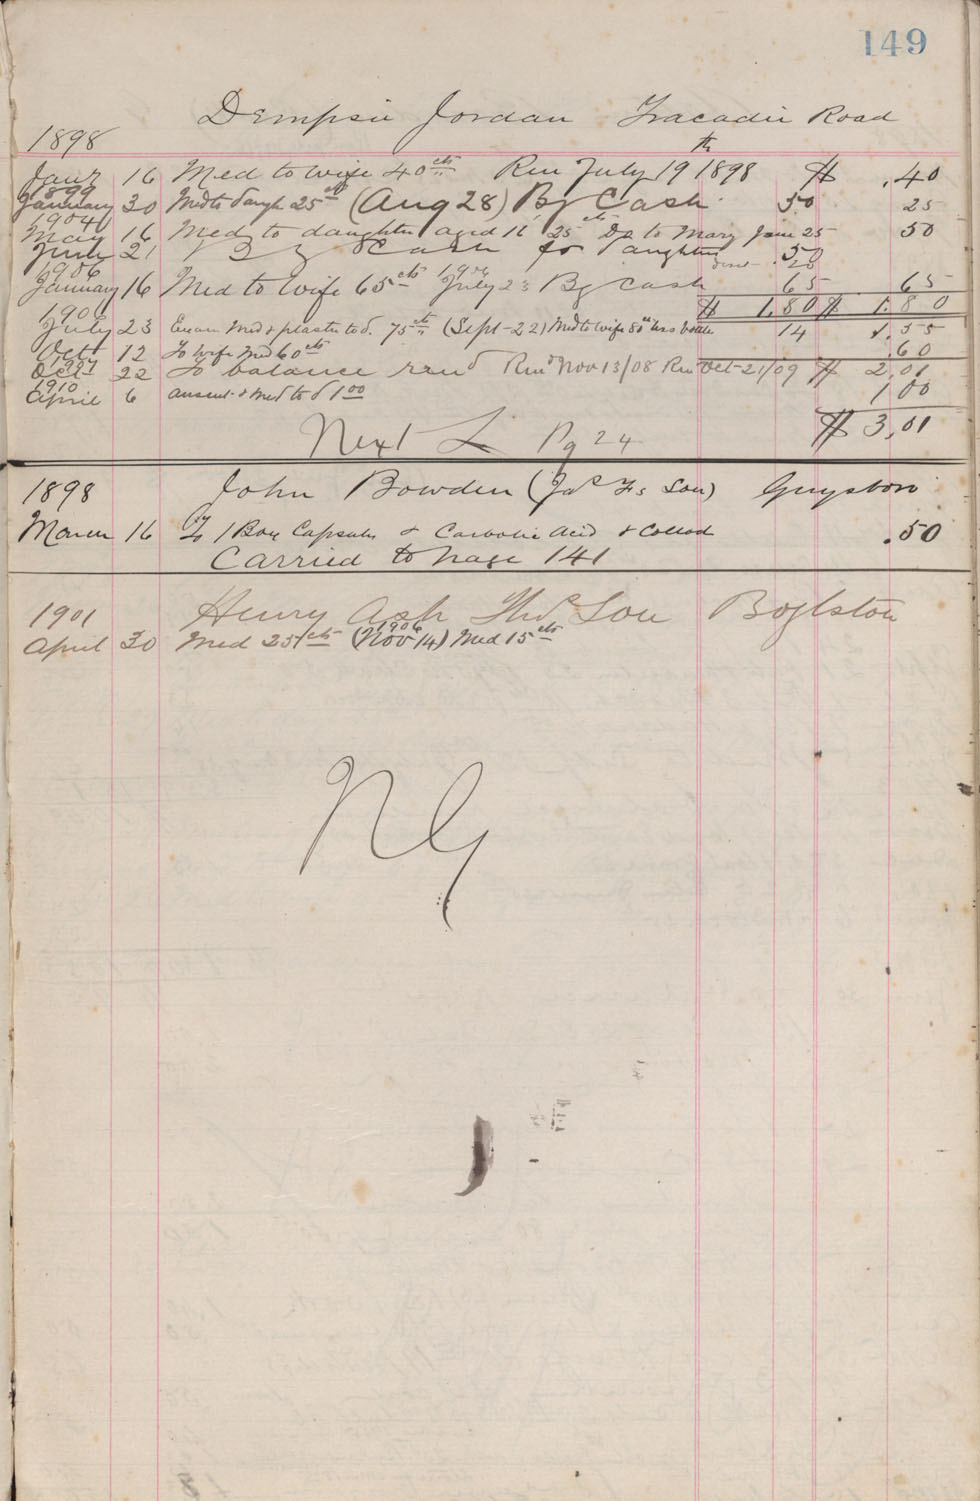 149
Dempsie Jordan Tracadie Road
1898
Jany 16 Med to wife 40 cts Ren July 19th 1898 $ .40
1899
January 30 Med to daugh 25 cts (Aug 28) By Cash 50 25
1904
May 16 Med to daughter aged 16 25 cts Do to Mary Jane 25 50
June 21 By Cash for Daughter 50
disct 20
1906
January 16 Med to wife 65 cts 1906 July 23 By Cash 65 65
$ 1.80 $ 1.80
190
July 23 Exam Med & plaster to d. 75 cts (Sept-22) Med to wife 80 cts less bottle 14 1.55
Oct 12 To wife Med 60 cts .60
1907
Oct 22 To balance rend Rend Nov 13/08 Ren Oct-21/09 $ 2.01
1910
April 6 & Med to d 1 00 1 00
$ 3,01
Next L Pg 24
1898 John Bowden (Jas Fs Son) Guysboro
March 16 To 1 Box Capsules & Carbolic Acid & .50
Carried to page 141
1901 Henry Ash Thos Son Boylston
April 30 Med 25 cts (1906 Nov 14) Med 15 cts